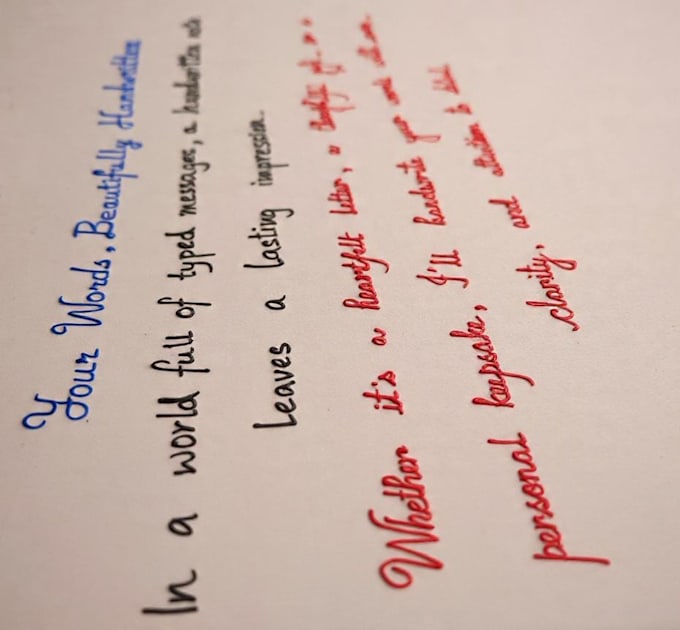 Your Words, Beautifully Handwritten
In a world full of typed messages, a handwritten note
Leaves a lasting impression.
Whether it's a heartfelt letter, a
personal keepsake, I'll handwrite your
clarity, and attention to detail